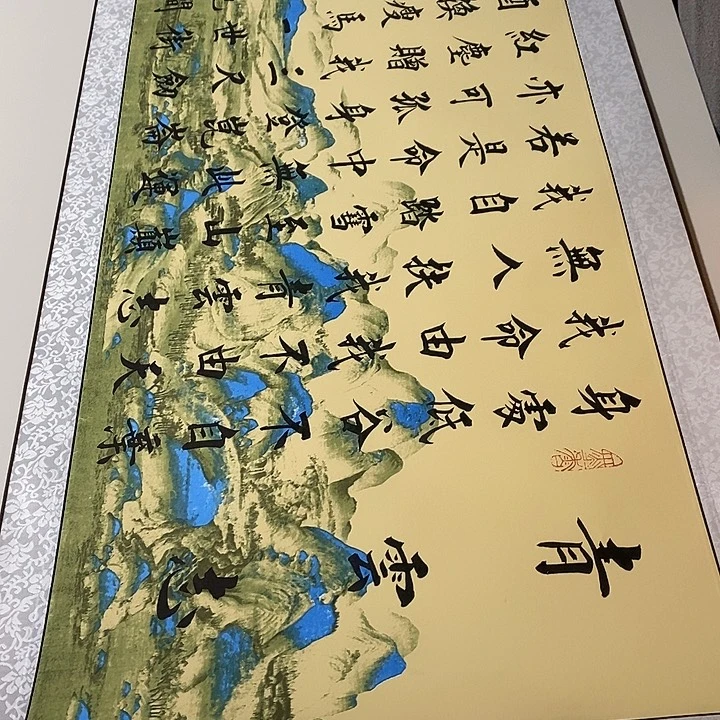 青雲志
身處低谷不自棄
我命由我不由天
無人扶我青雲志
我自踏雪至山巔
若是命中無此運
亦可孤身登崑崙
紅塵贈我三尺劍
酒換瘦馬世